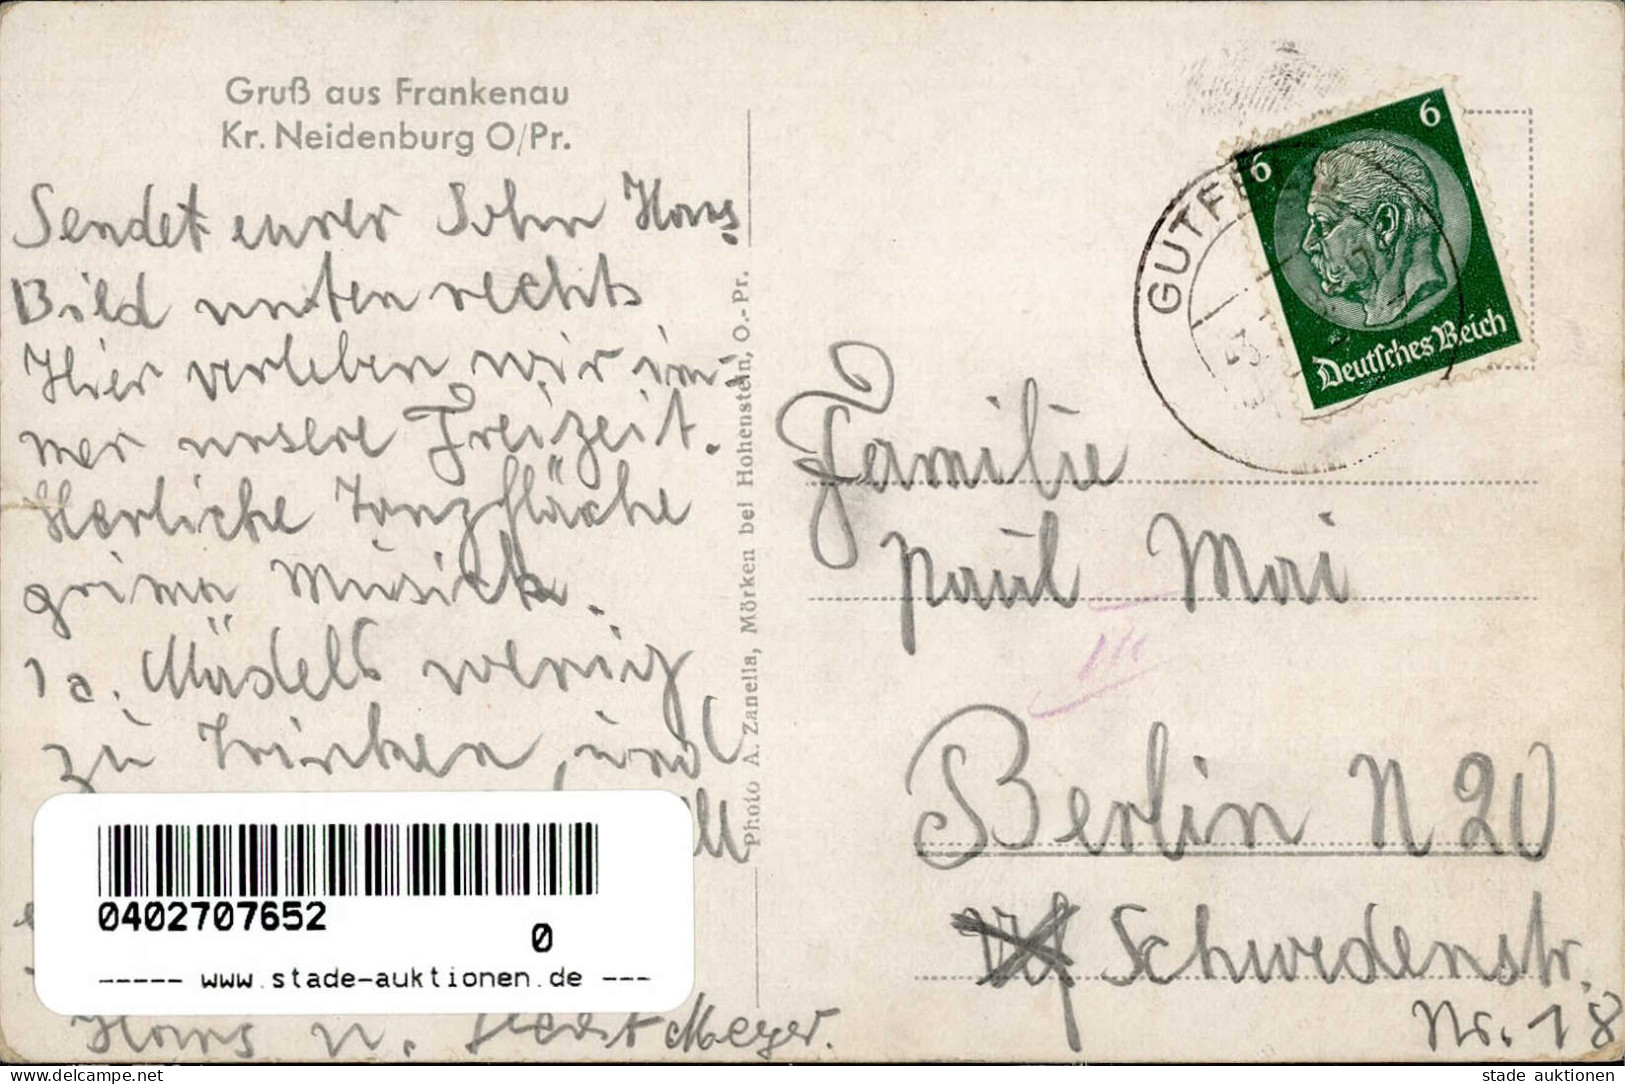 Gruß aus Frankenau
Kr. Neidenburg O/Pr.
Sendet eurer Sohn Hans
Bild unten rechts
Hier verleben wir im-
mer unsere Freizeit.
Herliche Tanzfläche
prima Musick.
1a. Mädels wenig
zu Trinken, und
Hans u. Meyer.
Photo A. Zanella, Mörken bei Hohenstein, O.-Pr.
6
6
Deutsches Reich
GUTFE
Familie
Paul Mai
Berlin N 20
Schwedenstr.
Nr. 18
0402707652
0
----- www.stade-auktionen.de ---
www.delcampe.net
stade auktionen